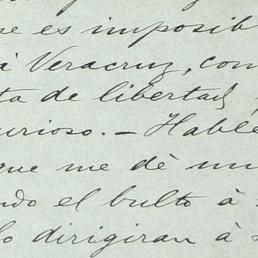 e es imposib
á Veracruz, com
ta de libertad y
urioso. — Hable
que me dè un
ndo el bulto à s
lo dirigiran à s